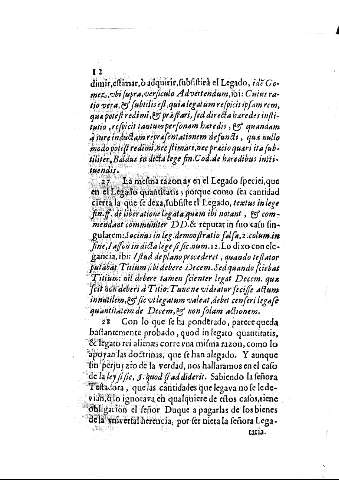 12
dimir, estimar, o adquirir, subsistirà el Legado, idē Go-
mez, vbi supra, versiculo Advertendum, ibi: Cuius ra-
tio vera, & subtilis est, quia legatum respicit ipsam rem,
quæ potest redimi, & præstari, sed directa hæredis insti-
tutio, respicit tantum personam hæredis, & quandam
iure inductam repræsentationem defuncti, quæ nullo
modo potest redimi, nec æstimari, nec præcio quæri ita sub-
tiliter, Baldus in dicta lege fin. Cod. de hæredibus insti-
tuendis.
27 La mesma razon ay en el Legado speciei, que
en el Legado quantitatis; porque como sea cantidad
cierta la que se dexa, subsiste el Legado, textus in lege
fin. ff. di liberatione legata, quem ibi notant, & com-
mendant communiter DD. & reputat in suo casu sin-
gularem: Socinus in leg. demonstratio falsa, 2. colum. in
fine, Iasson in dicta lege si sic num. 12. Lo dixo con ele-
gancia, ibi: Istud de plano procederet, quando testator
putabat Titium sibi debere Decem. Sed quando sciebat
Titium: nil debere tamen scienter legat Decem. quæ
scit non deberi à Titio: Tunc ne videatur fecisse actum
inutilem, & sic vt legatum valeat, debet censeri legasse
quantitatem de Decem, & non solam actionem.
28 Con lo que se ha ponderado, parece queda
bastantemente probado, quod in legato quantitatis,
& legato rei alienæ corre vna misma razon, como lo
apoyan las doctrinas, que se han alegado. Y aunque
sin perjuizio de la verdad, nos hallaramos en el caso
de la ley si sic, §. quod si addiderit. Sabiendo la señora
Testadora, que las cantidades que legava no se le de-
vian, ò lo ignorava en qualquiere de estos casos, tiene
obligacion el señor Duque a pagarlas de los bienes
de la vniversal herencia, por ser nieta la señora Lega-
taria.